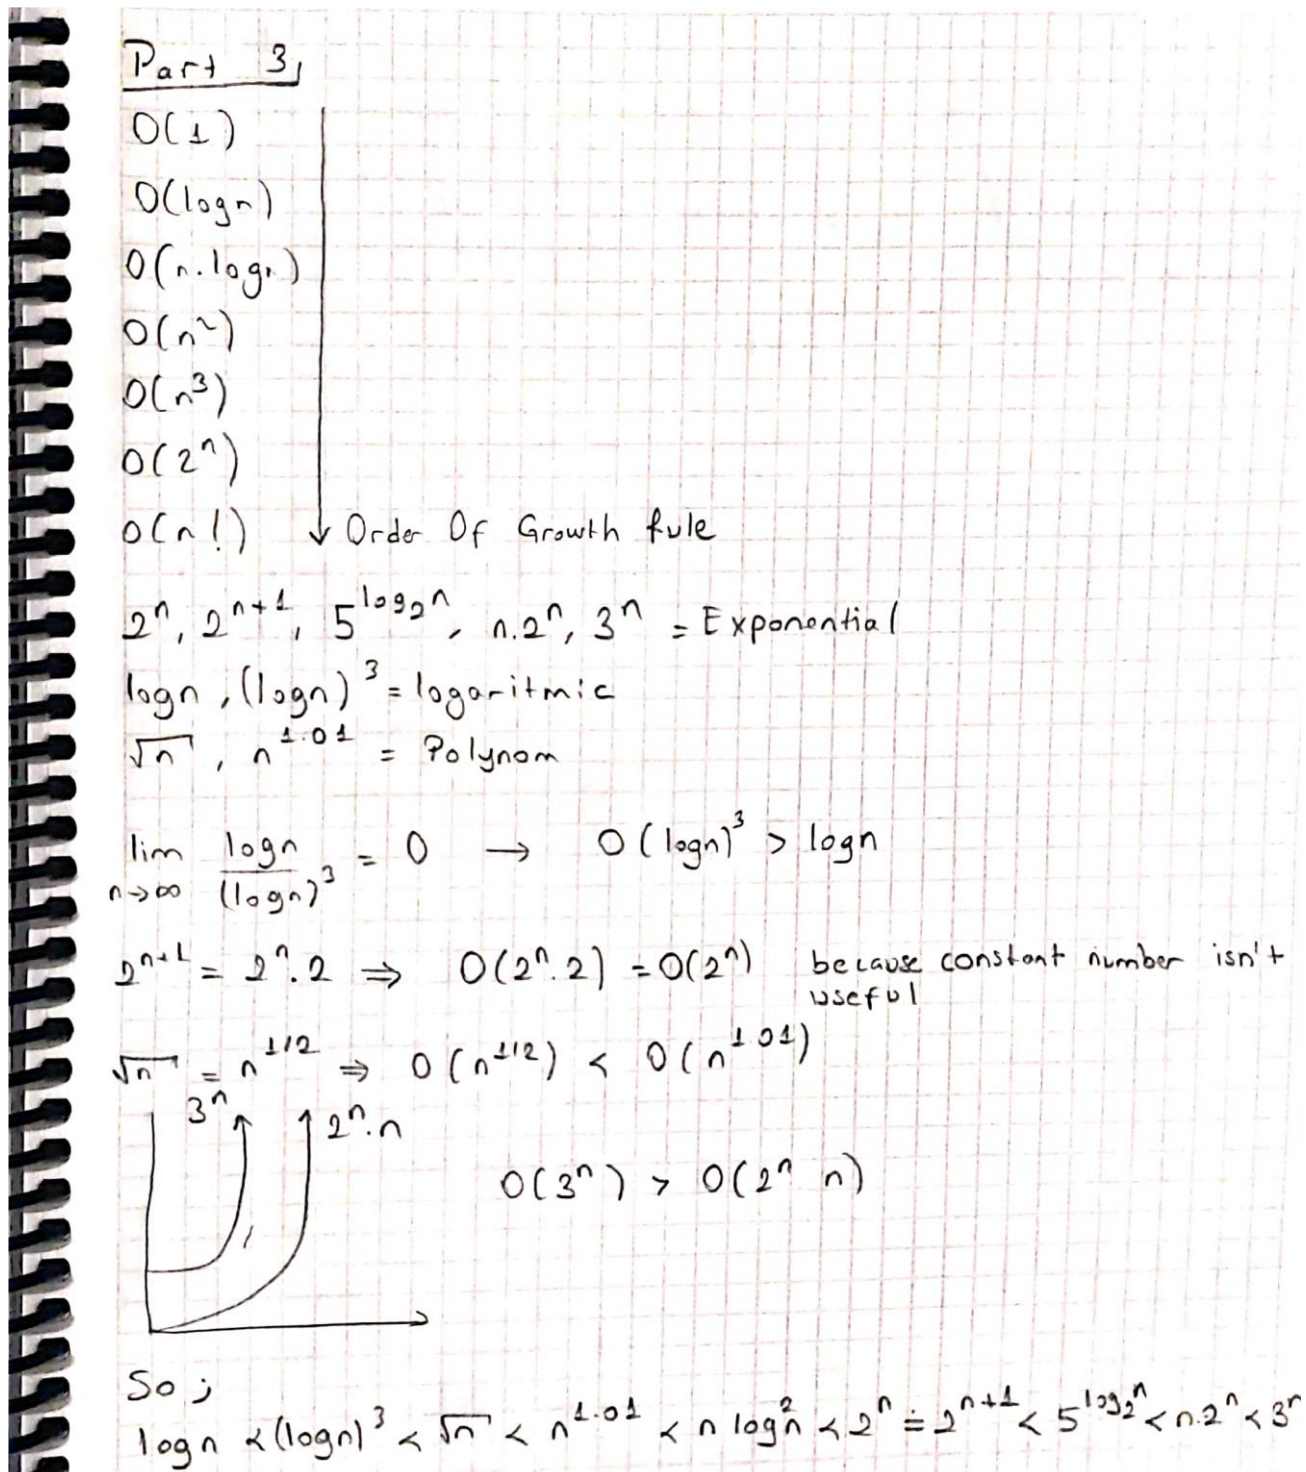 Part 3,
O(1)
O(logn)
O(n.logn)
O(n²)
O(n³)
O(2ⁿ)
O(n!) ↓ Order Of Growth Rule
2ⁿ, 2ⁿ⁺¹, 5^log₂n, n.2ⁿ, 3ⁿ = Exponential
logn, (logn)³ = logaritmic
√n, n^1.01 = Polynom
lim n→∞ logn/(logn)³ = 0 → O(logn)³ > logn
2ⁿ⁺¹ = 2ⁿ.2 ⇒ O(2ⁿ.2) = O(2ⁿ) because constant number isn't
useful
√n = n^1/2 ⇒ O(n^1/2) < O(n^1 01)
3ⁿ 2ⁿ.n
O(3ⁿ) > O(2ⁿ n)
So ;
logn < (logn)³ < √n < n^1.01 < n log²n < 2ⁿ = 2ⁿ⁺¹ < 5^log₂n < n.2ⁿ < 3ⁿ